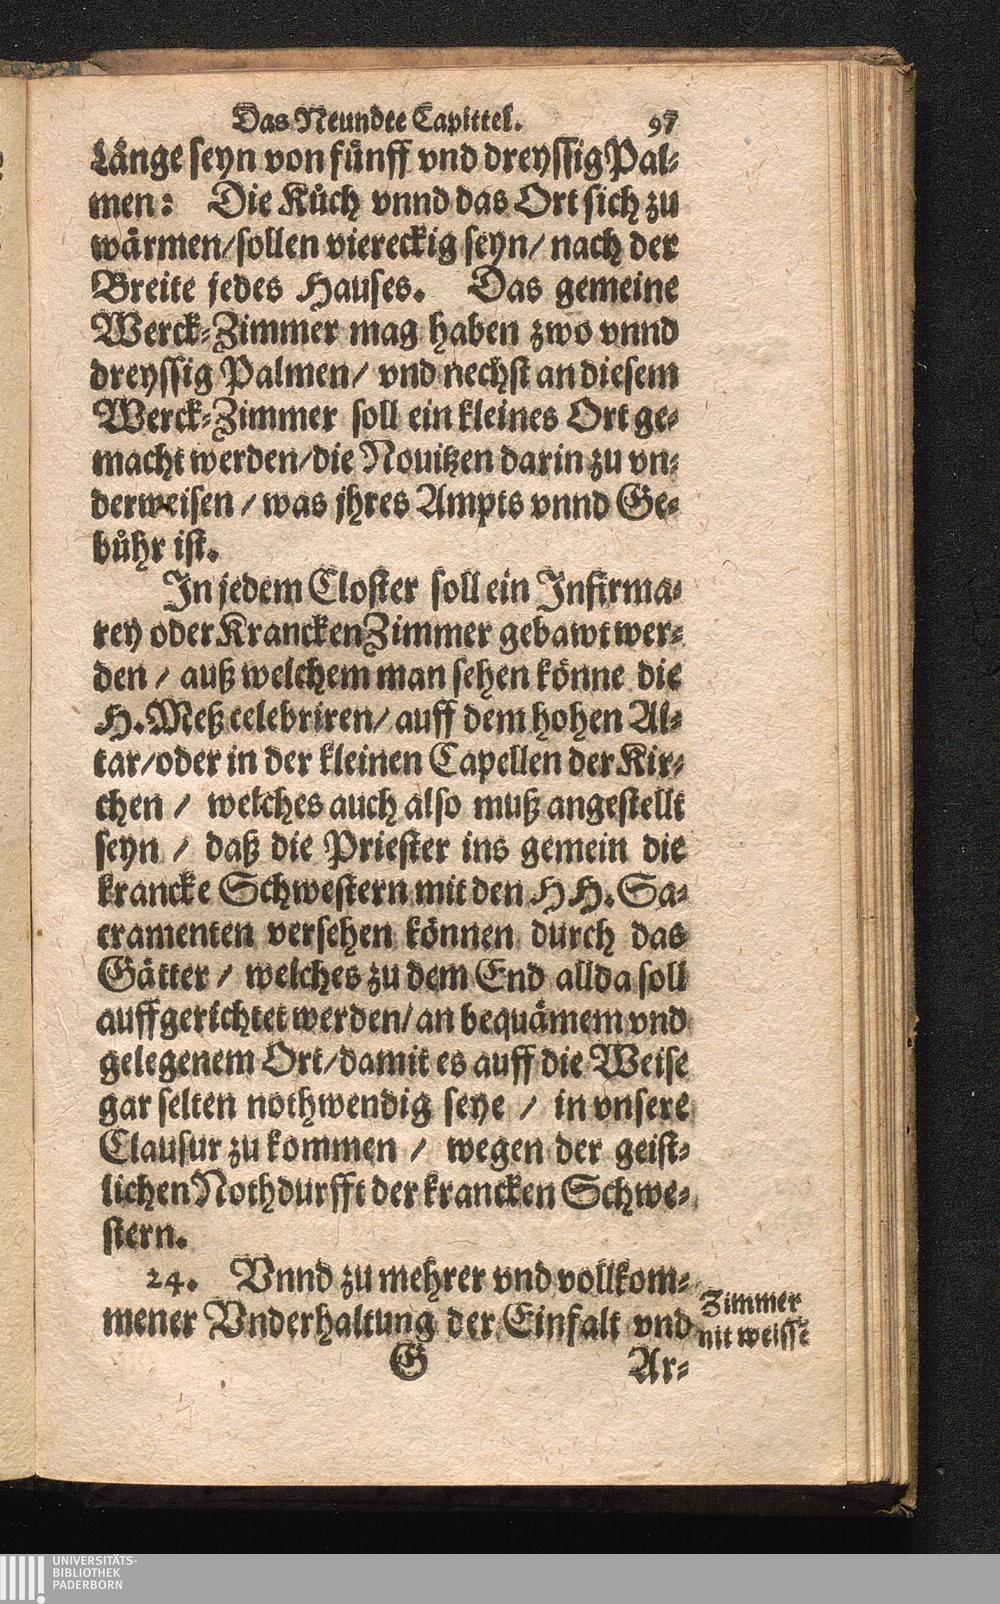 Das Neundte Capittel. 97
Länge seyn von fünff vnd dreyssig Pal-
men: Die Kůch vnnd das Ort sich zu
wärmen/sollen viereckig seyn/ nach der
Breite jedes Hauses. Das gemeine
Werck-Zimmer mag haben zwo vnnd
dreyssig Palmen/ vnd nechst an diesem
Werck-Zimmer soll ein kleines Ort ge-
macht werden/die Nouitzen darin zu vn-
derweisen / was jhres Ampts vnnd Ge-
bůhr ist.
In jedem Closter soll ein Infirma-
rey oder Krancken Zimmer gebawt wer-
den / auß welchem man sehen könne die
H. Meß celebriren/ auff dem hohen Al-
tar/oder in der kleinen Capellen der Kir-
chen / welches auch also muß angestellt
seyn / daß die Priester ins gemein die
krancke Schwestern mit den HH. Sa-
cramenten versehen können durch das
Gätter / welches zu dem End allda soll
auffgerichtet werden/ an bequämem vnd
gelegenem Ort/damit es auff die Weise
gar selten nothwendig seye / in vnsere
Clausur zu kommen / wegen der geist-
lichen Nothdurfft der krancken Schwe-
stern.
24. Vnnd zu mehrer vnd vollkom-
mener Vnderhaltung der Einfalt vnd
Zimmer
nit weissē
G Ar-
UNIVERSITÄTS-
BIBLIOTHEK
PADERBORN